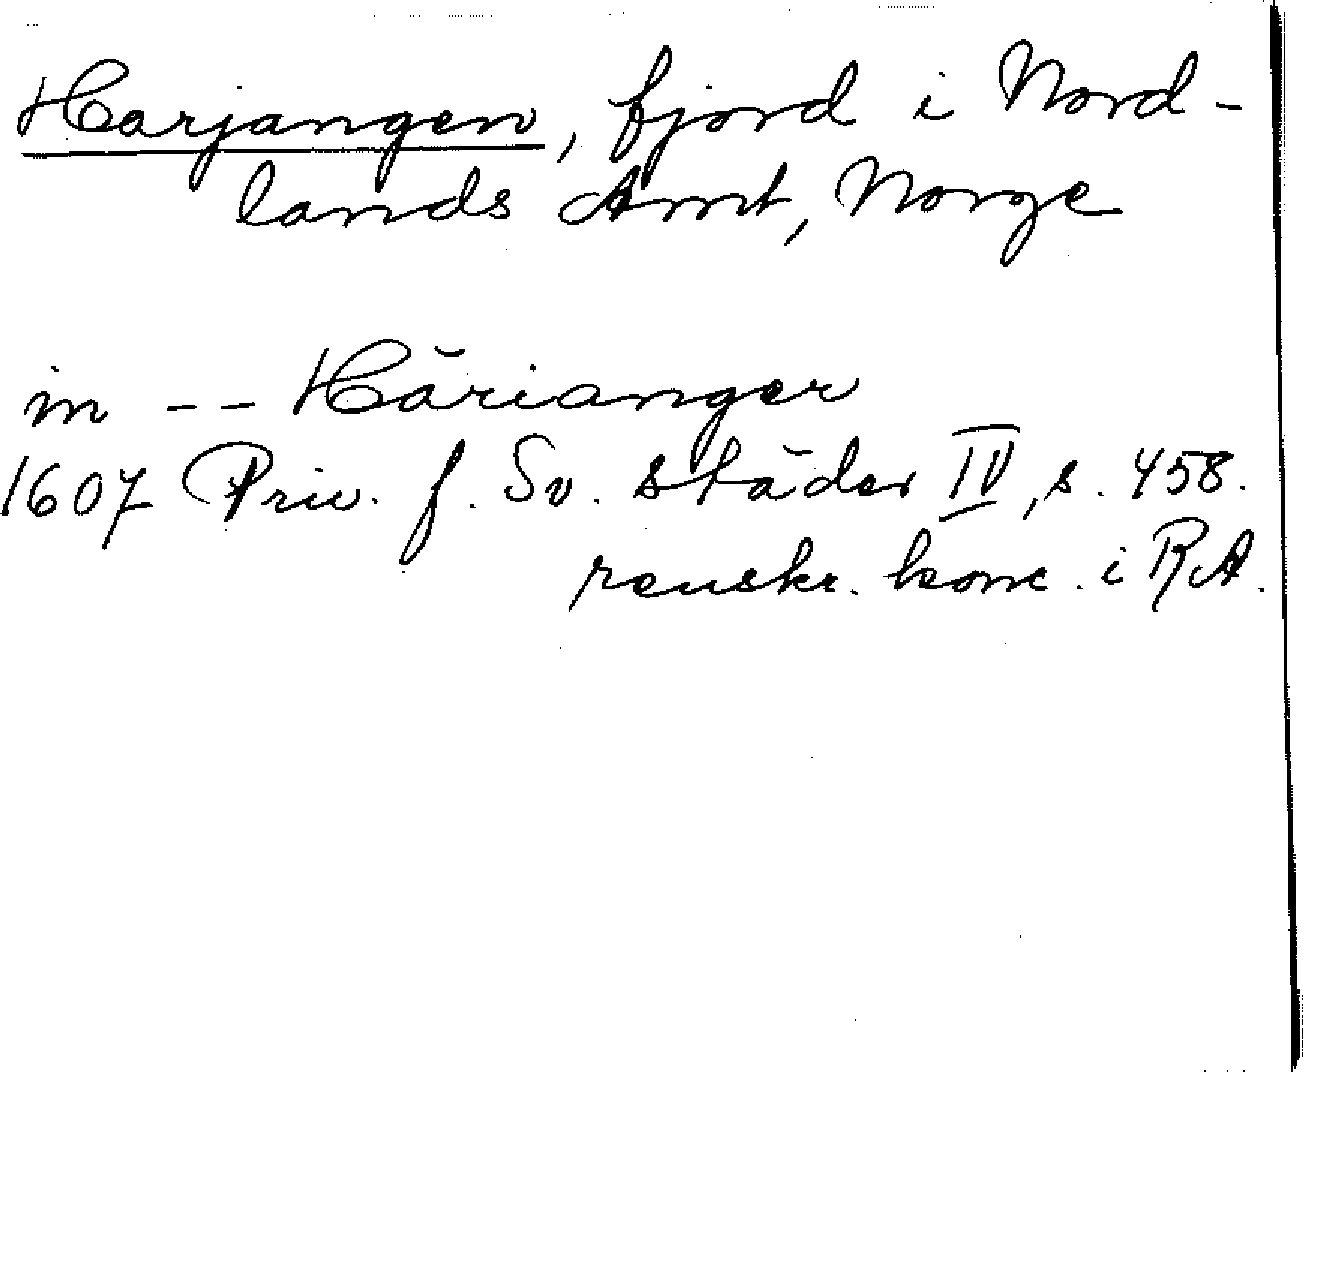 Harjangen, fjord i Nord-
lands Amt, Norge
in -- Härianger
1607 Priv. f. Sv. städer IV, s. 458.
renskr. konc. i RA.